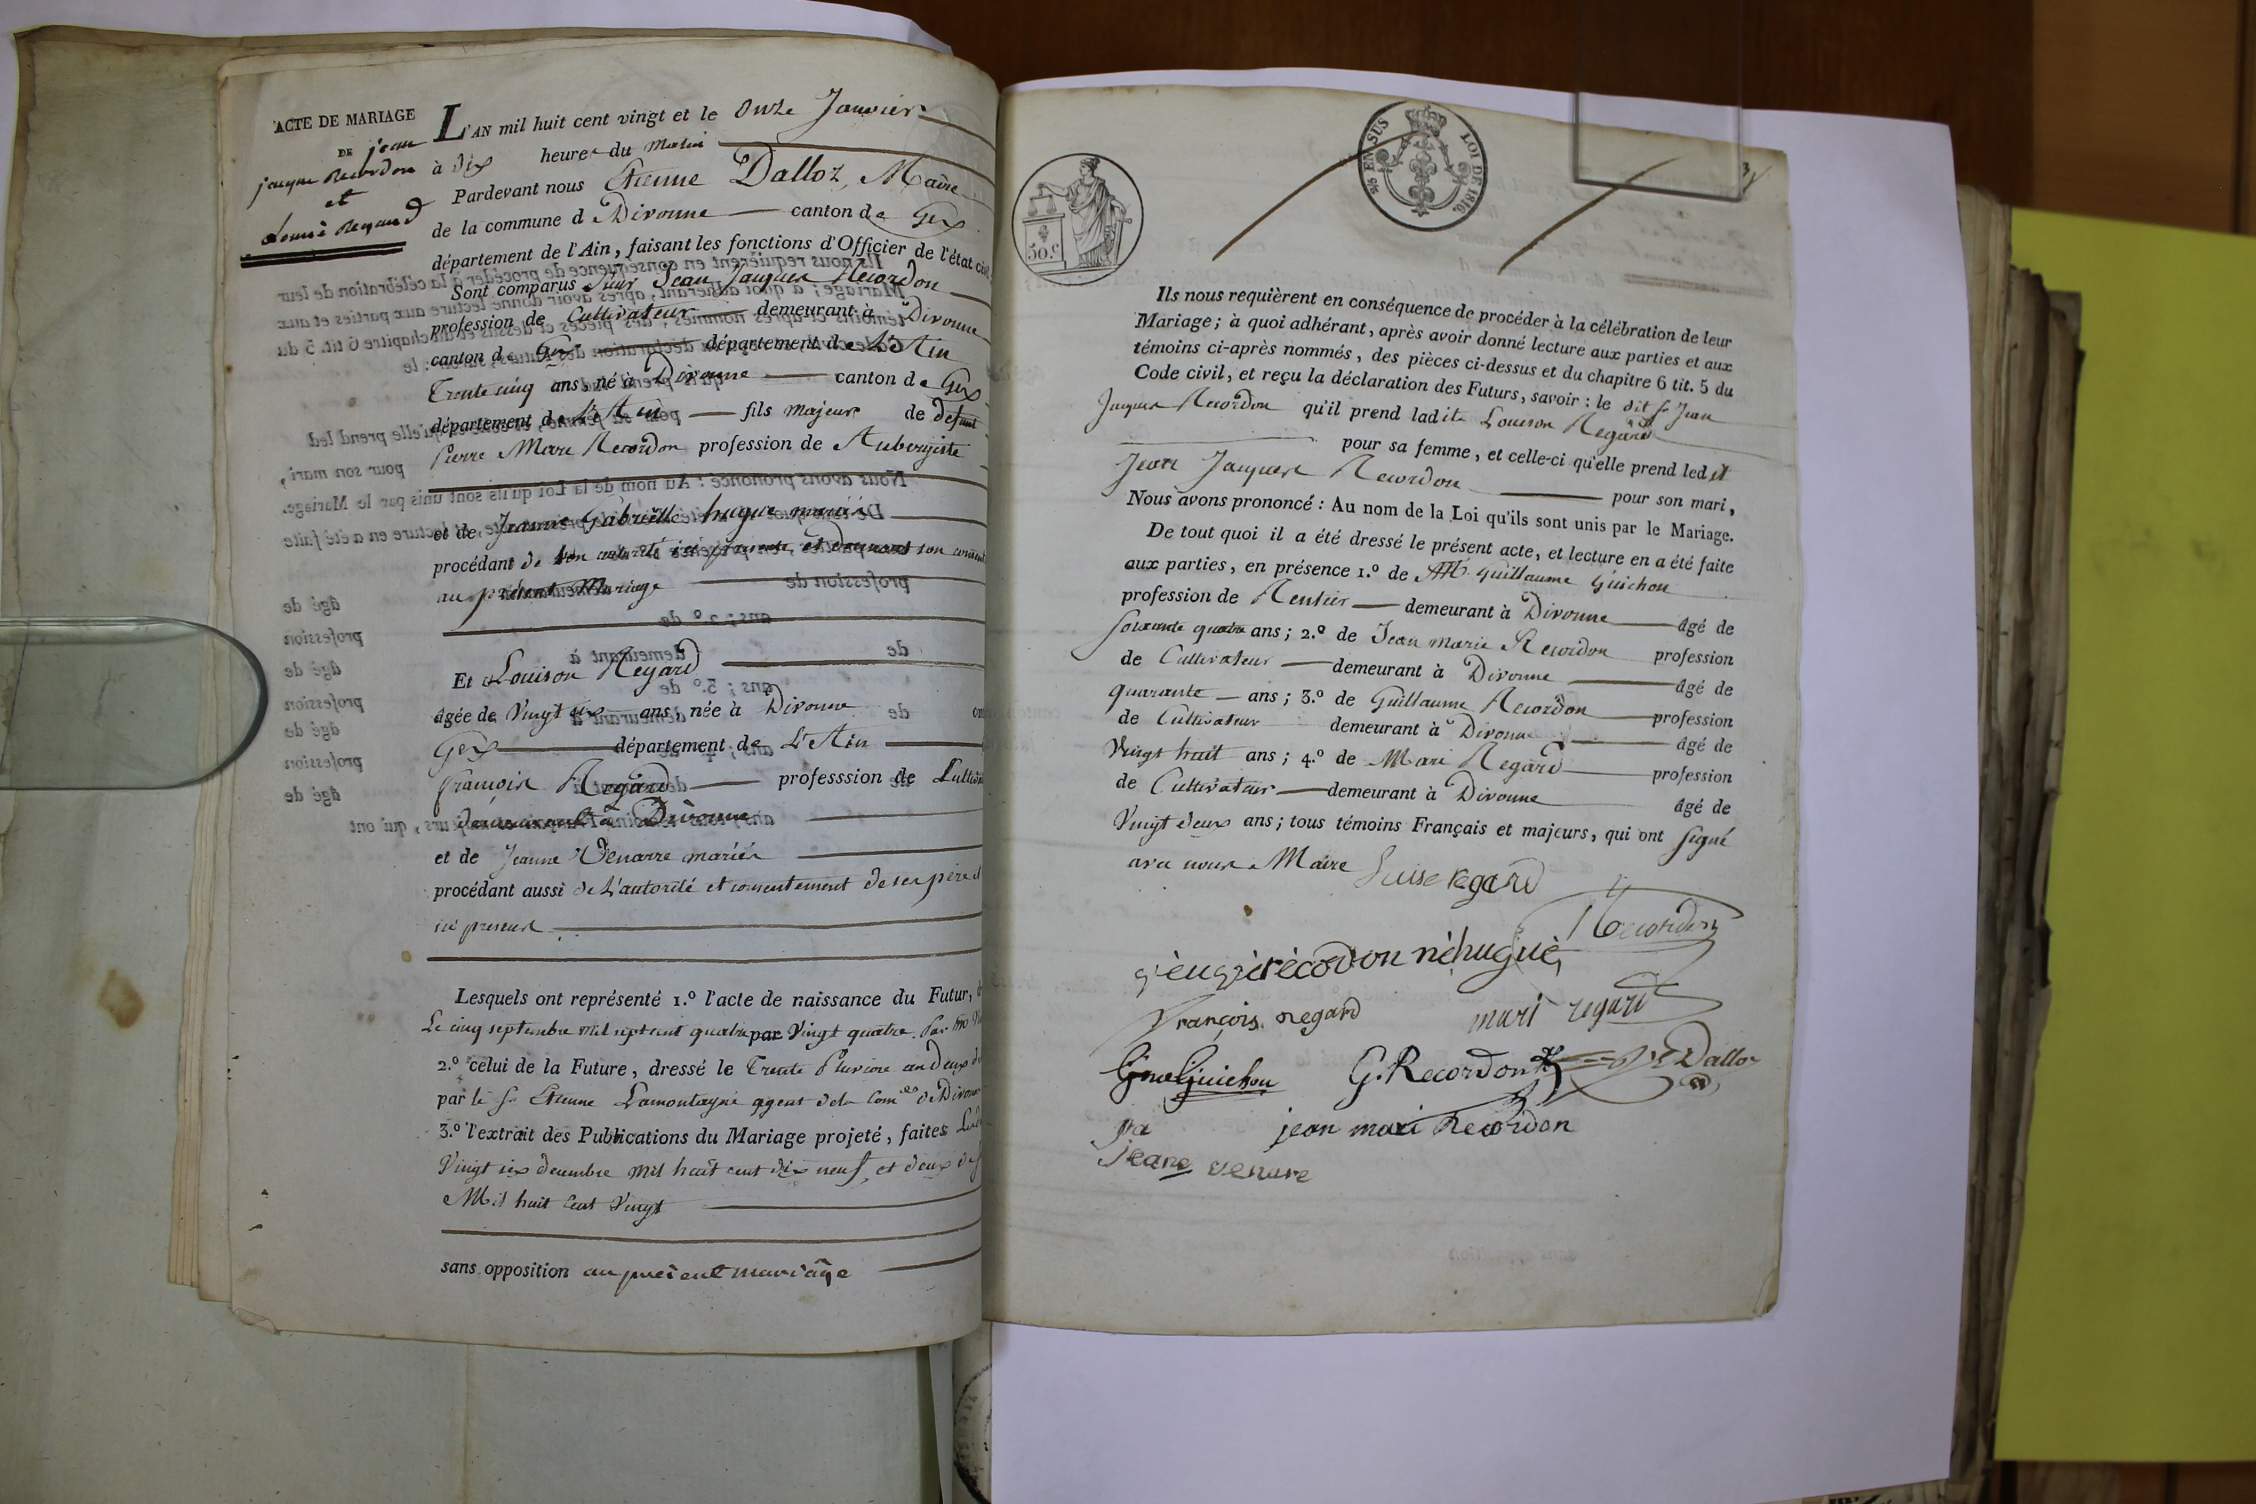 ACTE DE MARIAGE
DE jean
jacque Recordon
et
Louise Regard
L'AN mil huit cent vingt et le Onze Janvier
à dix heures du Matin
Pardevant nous Etienne Dalloz, Maire
de la commune d Divonne canton de Gex
département de l'Ain, faisant les fonctions d'Officier de l'état civil
Sont comparus Sieur Jean Jacques Recordon
profession de Cultivateur demeurant à Divonne
canton de Gex département de L'Ain
Trente cinq ans, né à Divonne canton de Gex
département de L'Ain fils majeur de defunt
Pierre Marc Recordon profession de Aubergiste
et de Jeanne Gabrielle hugue mariés
procédant de son autorité ici présente et donnant son consent
au présent Mariage
Et Louison Regard
âgée de Vingt six ans, née à Divonne
Gex département de L'Ain
françois Regard professsion de Cultiv
demeurant à Divonne
et de Jeanne Venarre mariés
procédant aussi de L'autorité et consentement de ses père et
ici present
Lesquels ont représenté 1.º l'acte de naissance du Futur,
Le cinq septembre mil sept cent quatre par Vingt quatre. Par
2.º celui de la Future, dressé le Trente Pluviose an deux
par le Sr. Etienne Lamontagne agent de la Com.ne de Divonne
3.º l'extrait des Publications du Mariage projeté, faites Les
Vingt six decembre mil huit cent dix neuf, et deux
Mil huit Cent Vingt
sans opposition au présent mariage
50.c
5/6 EN SUS
LOI DE 1816.
Ils nous requièrent en conséquence de procéder à la célébration de leur
Mariage; à quoi adhérant, après avoir donné lecture aux parties et aux
témoins ci-après nommés, des pièces ci-dessus et du chapitre 6 tit. 5 du
Code civil, et reçu la déclaration des Futurs, savoir: le dit Sr Jean
Jacques Recordon qu'il prend ladite Louison Regard
pour sa femme, et celle-ci qu'elle prend led it
Jean Jacques Recordon pour son mari,
Nous avons prononcé: Au nom de la Loi qu'ils sont unis par le Mariage.
De tout quoi il a été dressé le présent acte, et lecture en a été faite
aux parties, en présence 1.º de M.r Guillaume Guichon
profession de Rentier demeurant à Divonne âgé de
soixante quatre ans; 2.º de Jean marie Recordon profession
de Cultivateur demeurant à Divonne âgé de
quarante ans; 3.º de Guillaume Recordon profession
de Cultivateur demeurant à Divonne âgé de
Vingt huit ans; 4.º de Marc Regard profession
de Cultivateur demeurant à Divonne âgé de
Vingt deux ans; tous témoins Français et majeurs, qui ont signé
avec nous Maire
Luise regard
Recordon
récordon né hugue
François regard
marc regard
Gme Guichon
G. Recordon
Dalloz
jean mari Recordon
jeane venare